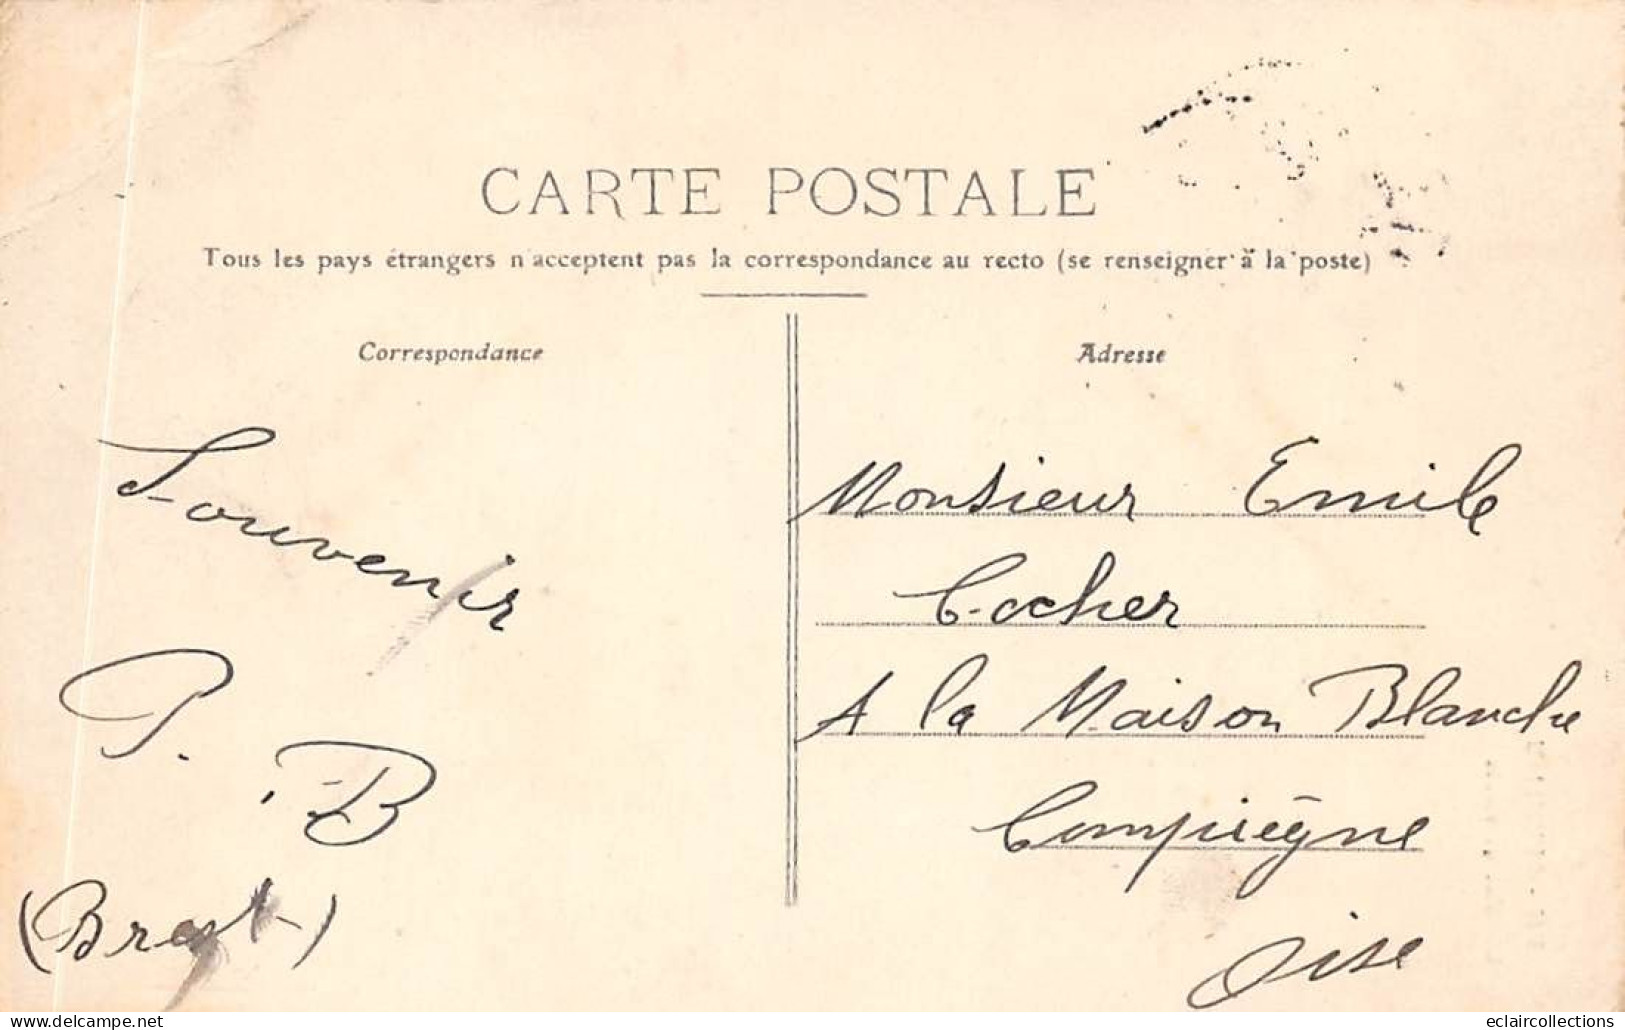 CARTE POSTALE
Tous les pays étrangers n'acceptent pas la correspondance au recto (se renseigner à la poste)
Correspondance
Souvenir
P. B
(Brest)
Adresse
Monsieur Emile
Cocher
A la Maison Blanche
Compiègne
Oise
www.delcampe.net
eclaircollections